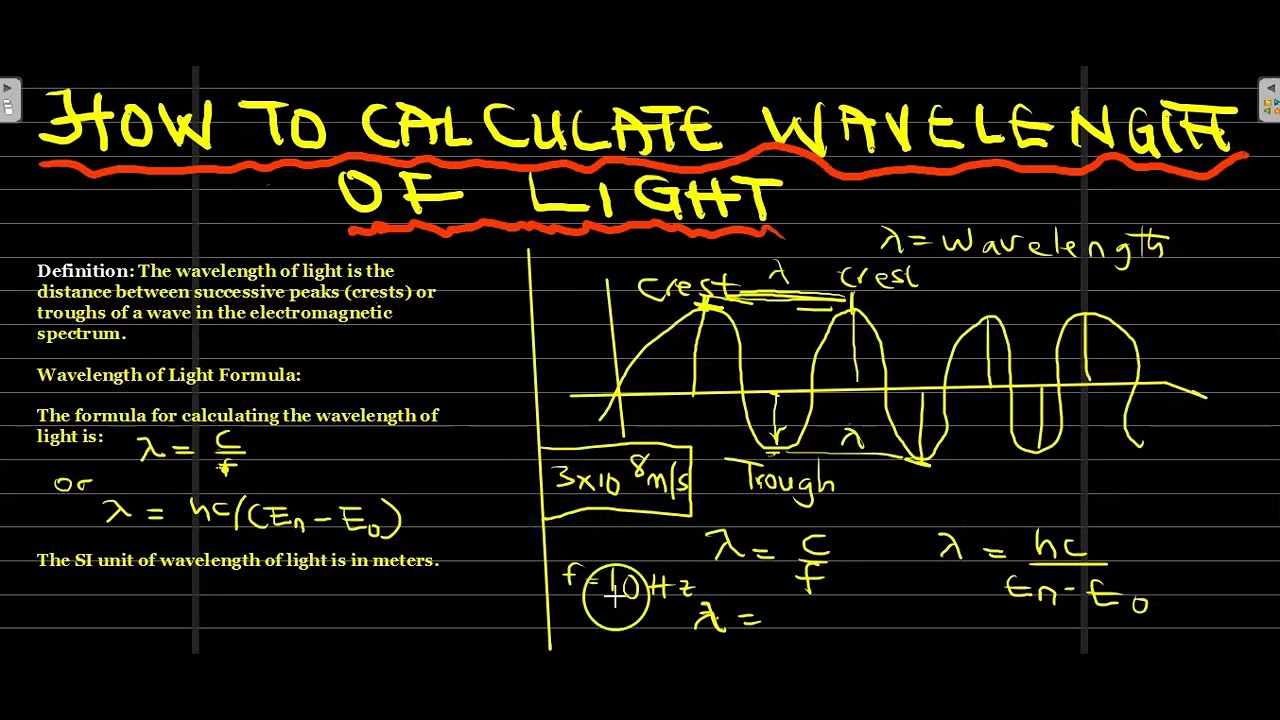 HOW TO CALCULATE WAVELENGTH
OF LIGHT
Definition: The wavelength of light is the
distance between successive peaks (crests) or
troughs of a wave in the electromagnetic
spectrum.
Wavelength of Light Formula:
The formula for calculating the wavelength of
light is:
λ = c/f
or
λ = hc/(En - E0)
The SI unit of wavelength of light is in meters.
λ = wavelength
crest λ crest
λ
Trough
3x10^8 m/s
λ = c/f
λ = hc/En - E0
f = 10Hz
λ =